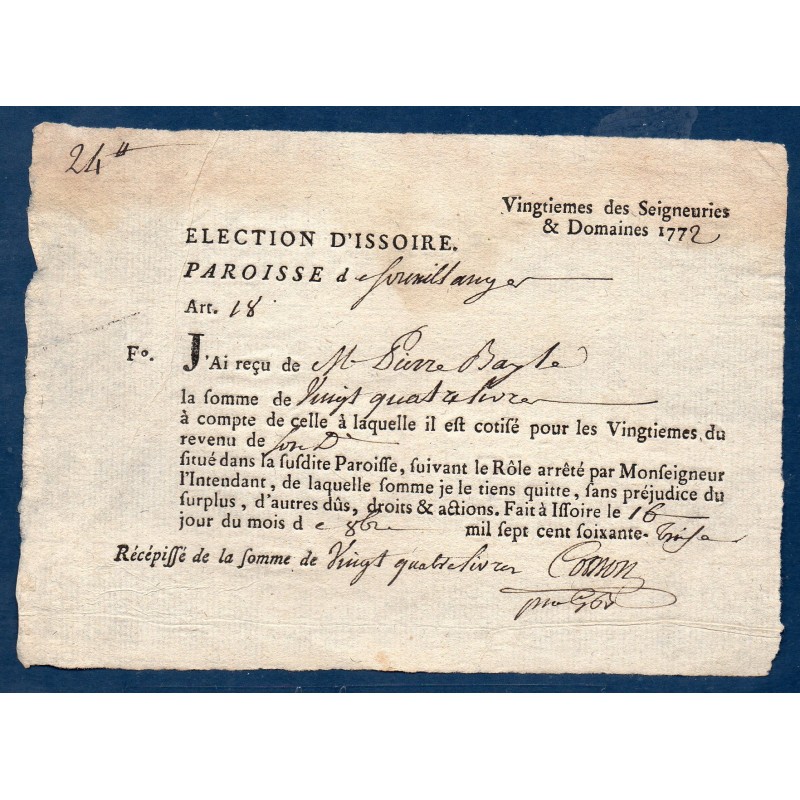 24tt
Vingtiemes des Seigneuries
& Domaines 1772
ELECTION D'ISSOIRE.
PAROISSE de
Art. 18
Fº. J'Ai reçu de Mr Pierre Bayle
la ſomme de Vingt quatre livres
à compte de celle à laquelle il eſt cotiſé pour les Vingtiemes du
revenu de son De
ſitué dans la ſuſdite Paroiſſe, ſuivant le Rôle arrêté par Monſeigneur
l'Intendant, de laquelle ſomme je le tiens quitte, ſans préjudice du
ſurplus, d'autres dûs, droits & actions. Fait à Iſſoire le 16
jour du mois de 8bre mil ſept cent ſoixante-treise
Récépiſſé de la ſomme de Vingt quatre livres